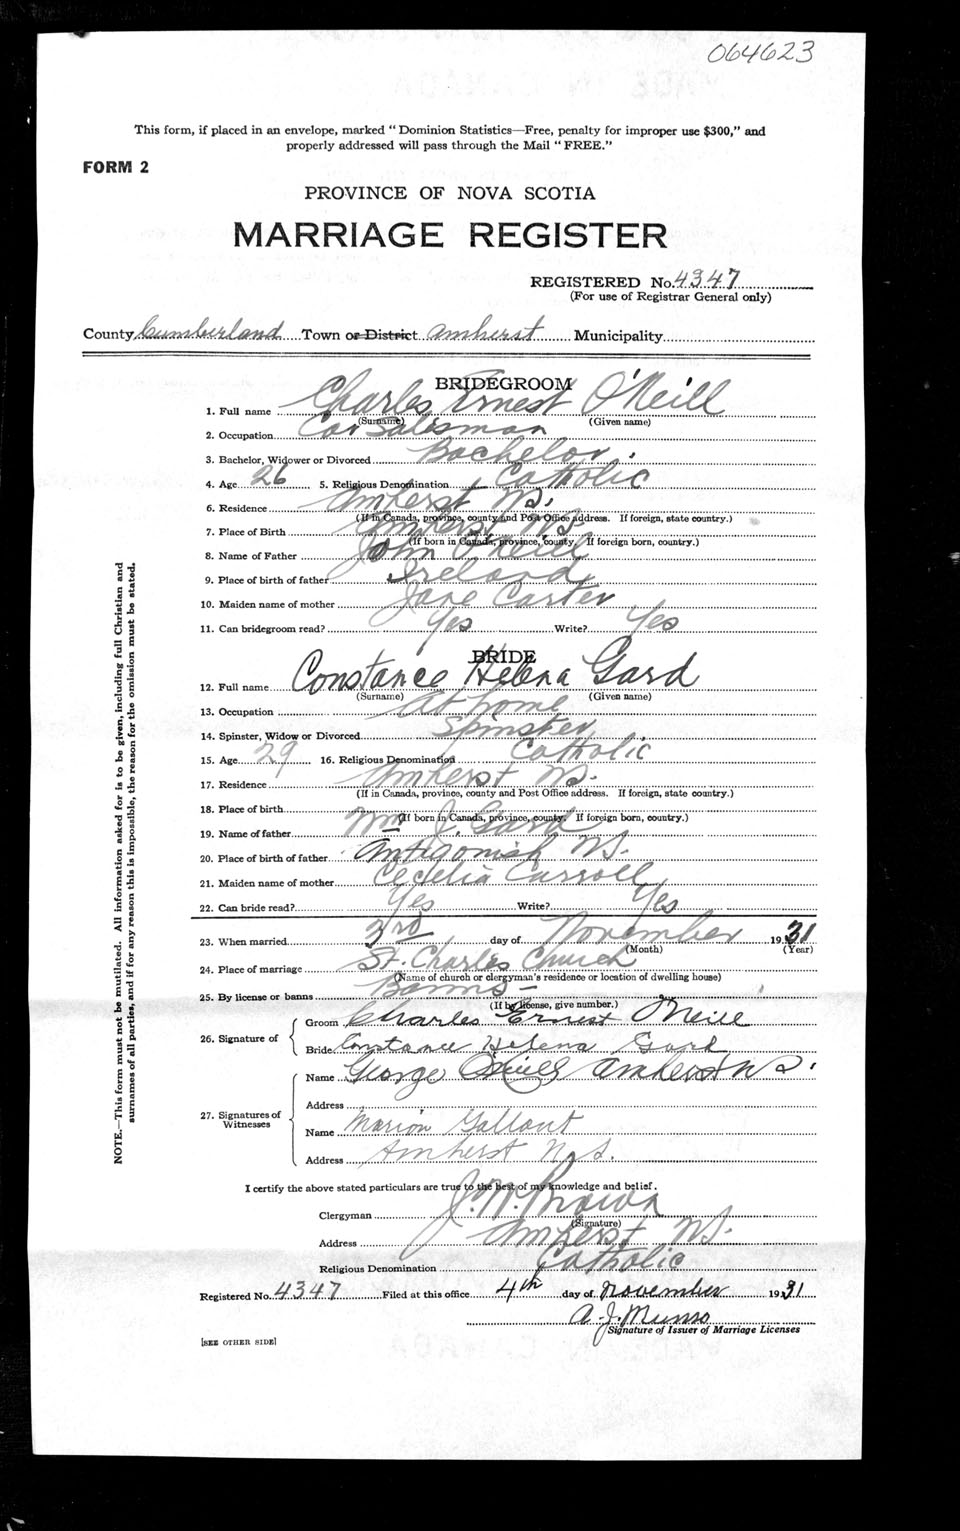 064623
This form, if placed in an envelope, marked "Dominion Statistics—Free, penalty for improper use $300," and
properly addressed will pass through the Mail "FREE."
FORM 2
PROVINCE OF NOVA SCOTIA
MARRIAGE REGISTER
REGISTERED No. 4347
(For use of Registrar General only)
County Cumberland Town or District Amherst Municipality
BRIDEGROOM
1. Full name Charles Ernest O'Neill
(Surname) (Given name)
2. Occupation Car Salesman
3. Bachelor, Widower or Divorced Bachelor.
4. Age 26 5. Religious Denomination Catholic
6. Residence Amherst N.S.
(If in Canada, province, county and Post Office address. If foreign, state country.)
7. Place of Birth Amherst N.S
(If born in Canada, province, county. If foreign born, country.)
8. Name of Father John O'Neill
9. Place of birth of father Ireland
10. Maiden name of mother Jane Carter
11. Can bridegroom read? Yes Write? Yes
BRIDE
12. Full name Constance Helena Gard
(Surname) (Given name)
13. Occupation At home
14. Spinster, Widow or Divorced Spinster
15. Age 29 16. Religious Denomination Catholic
17. Residence Amherst N.S.
(If in Canada, province, county and Post Office address. If foreign, state country.)
18. Place of birth
(If born in Canada, province, county. If foreign born, country.)
19. Name of father Wm J. Gard
20. Place of birth of father Antigonish N.S.
21. Maiden name of mother Cecelia Carroll
22. Can bride read? Yes Write? Yes
23. When married 3rd day of November 1931
(Month) (Year)
24. Place of marriage St. Charles Church
(Name of church or clergyman's residence or location of dwelling house)
25. By license or banns Banns
(If by license, give number.)
26. Signature of
Groom Charles Ernest O'Neill
Bride Constance Helena Gard
27. Signatures of Witnesses
Name George O'Neill Amherst N.S.
Address
Name Marion Gallant
Address Amherst N.S.
I certify the above stated particulars are true to the best of my knowledge and belief.
Clergyman J. W. Brown
(Signature)
Address Amherst N.S.
Religious Denomination Catholic
Registered No. 4347 Filed at this office 4th day of November 1931
A. J. Munro
Signature of Issuer of Marriage Licenses
[SEE OTHER SIDE]
NOTE.—This form must not be mutilated. All information asked for is to be given, including full Christian and
surnames of all parties, and if for any reason this is impossible, the reason for the omission must be stated.